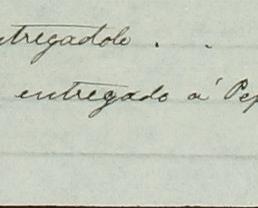 ntregadole . .
entregado á Pep